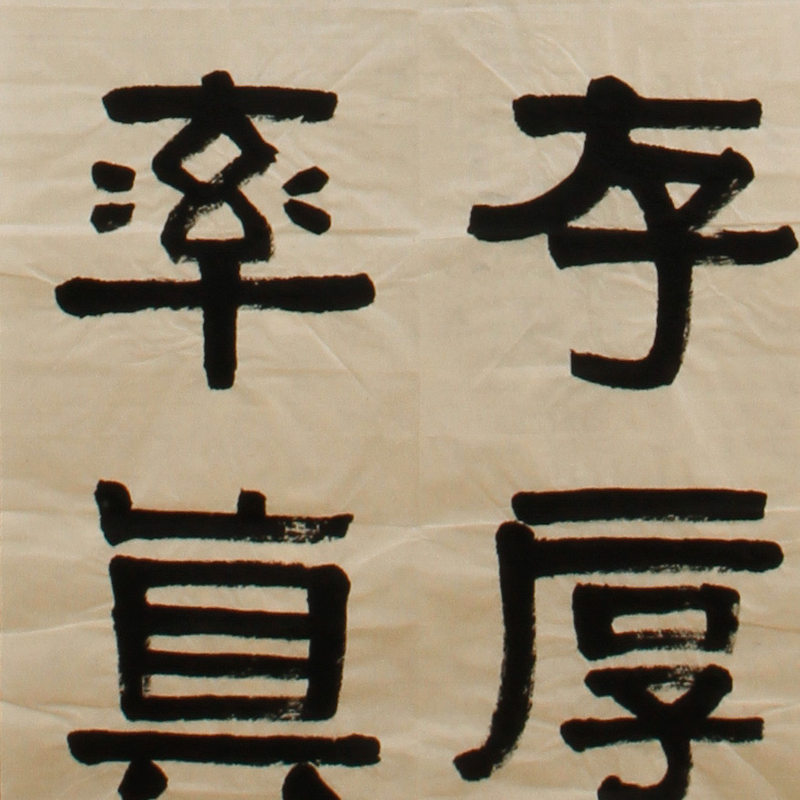 存厚
率真